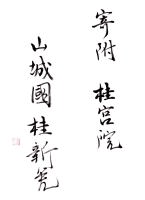 寄附 桂宮院
山城國 桂新免